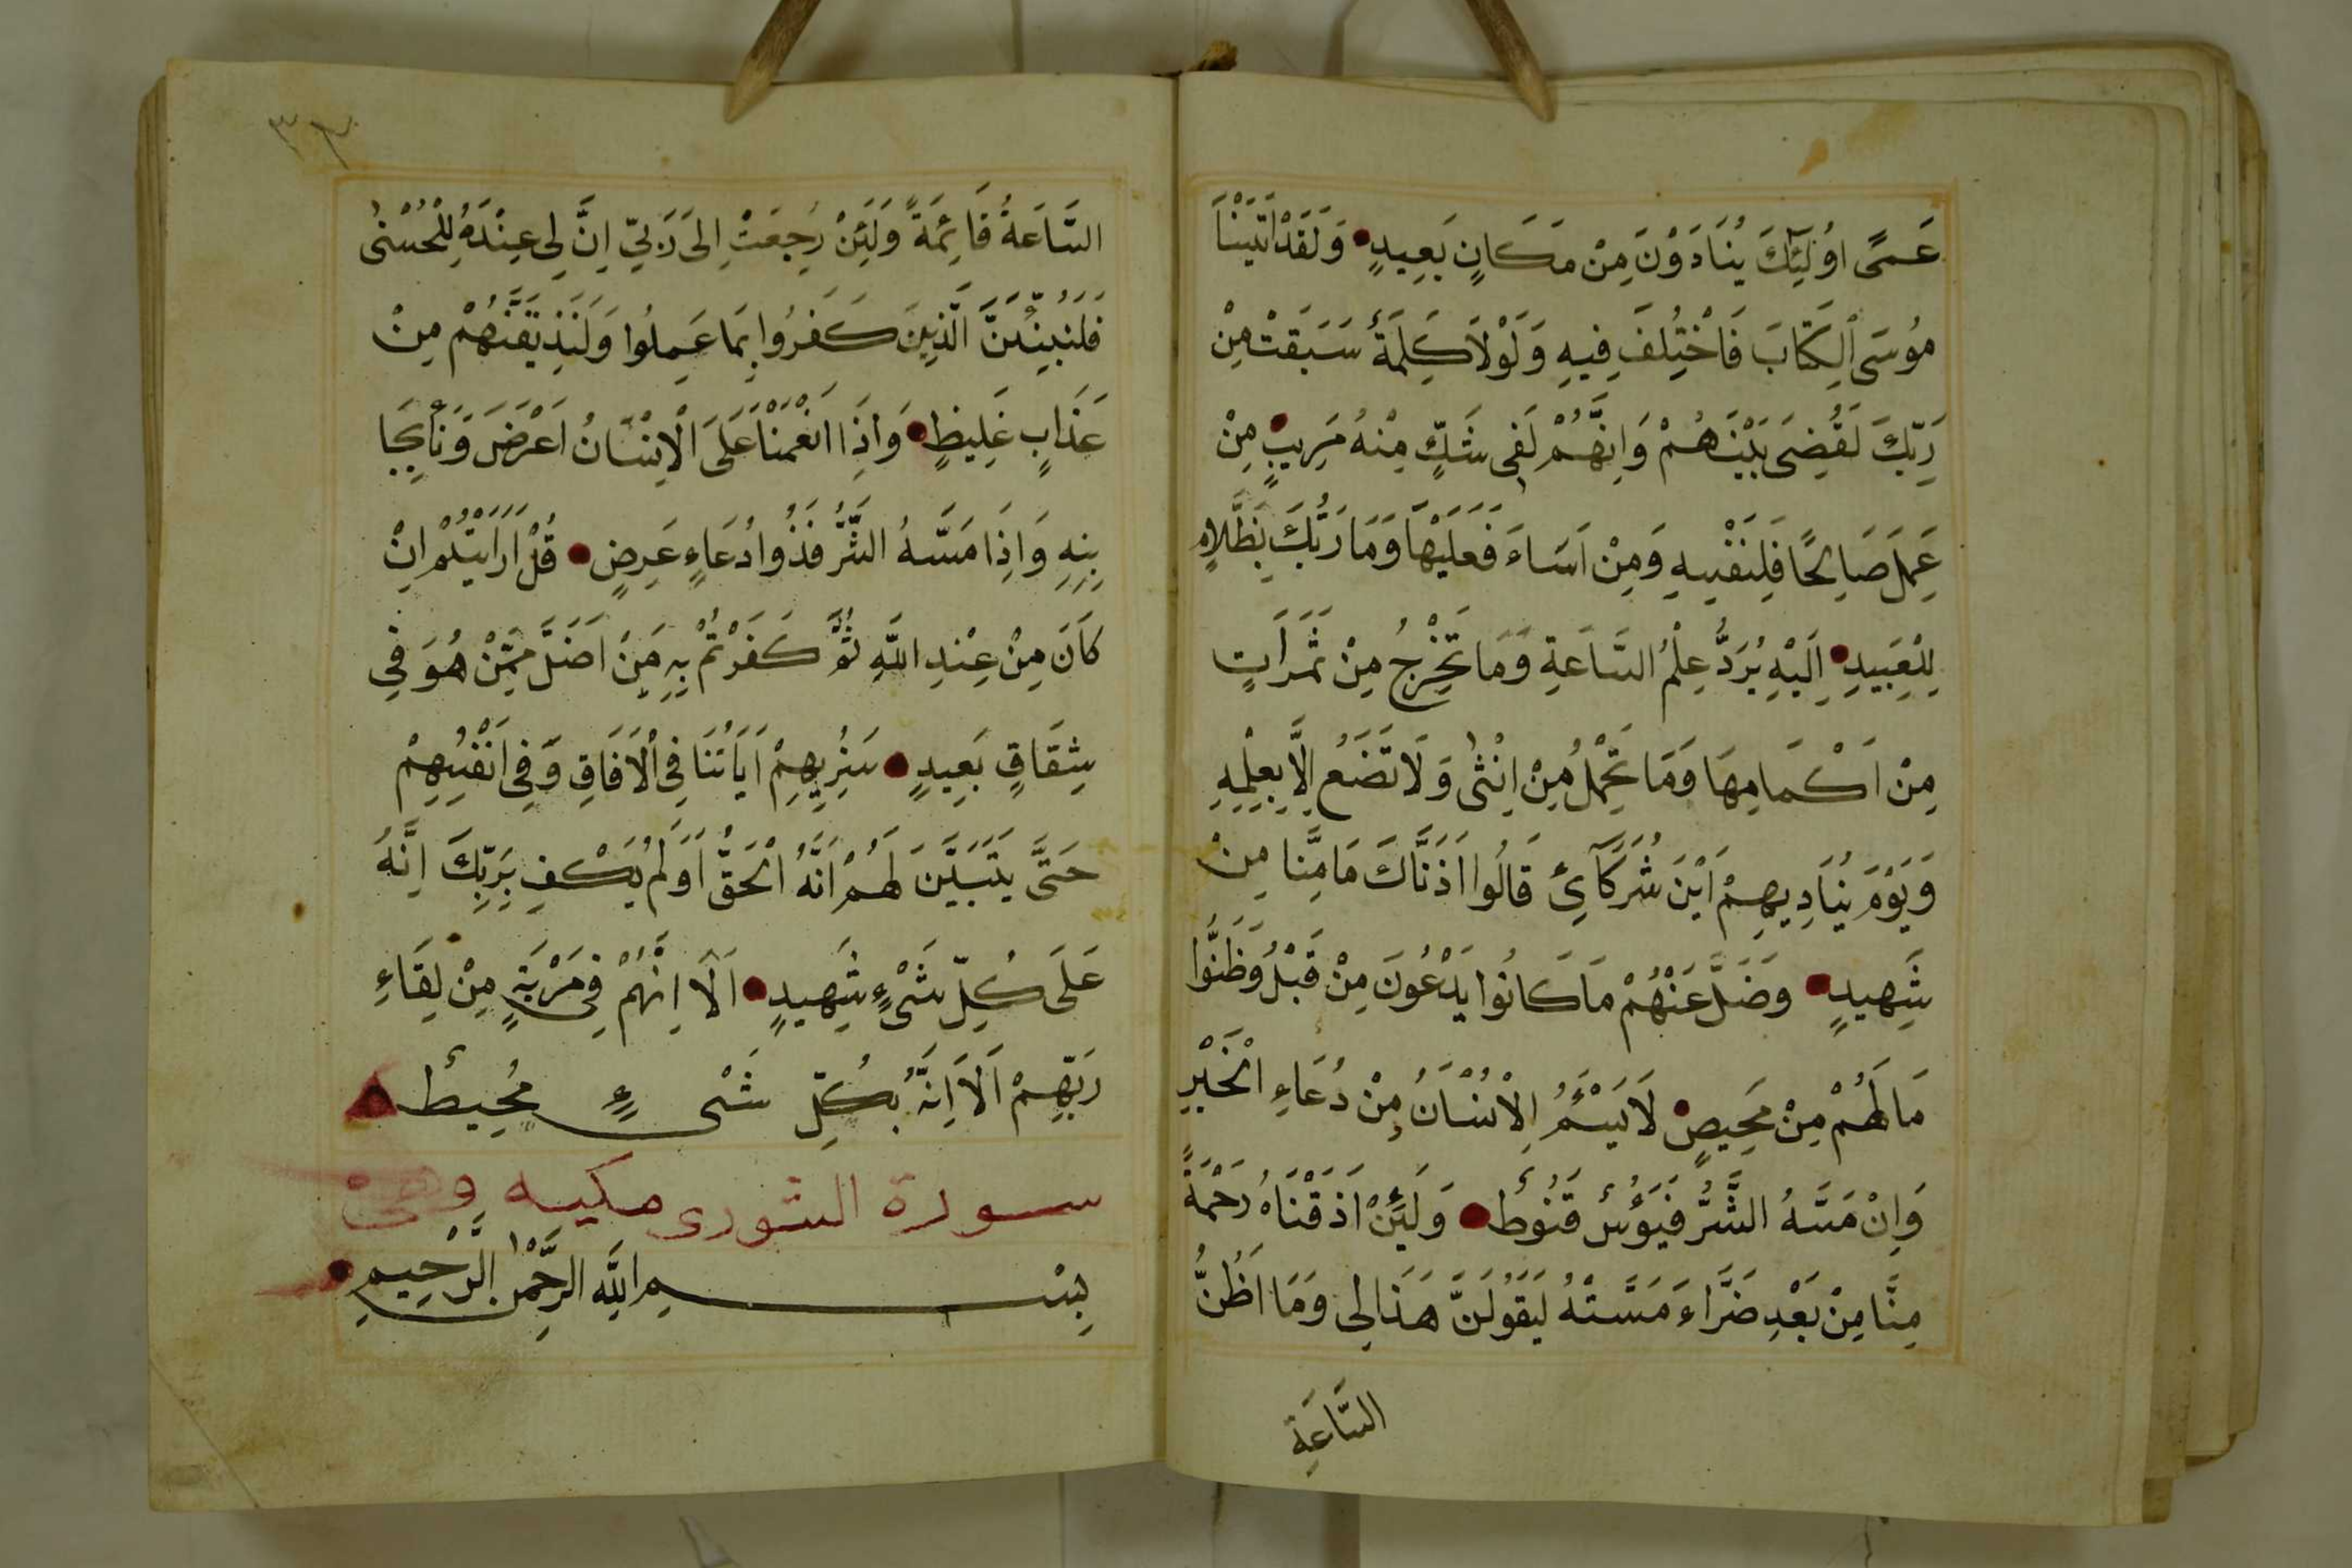 عَمًى اوُلٰٓئِكَ يُنَادَوْنَ مِنْ مَكَانٍ بَعِيدٍ وَلَقَدْ اٰتَيْنَا
مُوسَى الْكِتَابَ فَاخْتُلِفَ فِيهِ وَلَوْلَا كَلِمَةٌ سَبَقَتْ مِنْ
رَبِّكَ لَقُضِىَ بَيْنَهُمْ وَاِنَّهُمْ لَفِى شَكٍّ مِنْهُ مُرِيبٍ مِنْ
عَمِلَ صَالِحًا فَلِنَفْسِهِ وَمِنْ اَسَاءَ فَعَلَيْهَا وَمَا رَبُّكَ بِظَلَّامٍ
لِلْعَبِيدِ اِلَيْهِ يُرَدُّ عِلْمُ السَّاعَةِ وَمَا تَخْرُجُ مِنْ ثَمَرَاتٍ
مِنْ اَكْمَامِهَا وَمَا تَحْمِلُ مِنْ اُنْثٰى وَلَا تَضَعُ اِلَّا بِعِلْمِهِ
وَيَوْمَ يُنَادِيهِمْ اَيْنَ شُرَكَآئِى قَالُوا اٰذَنَّاكَ مَا مِنَّا مِنْ
شَهِيدٍ وَضَلَّ عَنْهُمْ مَا كَانُوا يَدْعُونَ مِنْ قَبْلُ وَظَنُّوا
مَا لَهُمْ مِنْ مَحِيصٍ لَا يَسْئَمُ الْاِنْسَانُ مِنْ دُعَاءِ الْخَيْرِ
وَاِنْ مَسَّهُ الشَّرُّ فَيَؤُسٌ قَنُوطٌ وَلَئِنْ اَذَقْنَاهُ رَحْمَةً
مِنَّا مِنْ بَعْدِ ضَرَّاءَ مَسَّتْهُ لَيَقُولَنَّ هَذَا لِى وَمَا اَظُنُّ
السَّاعَةِ
٣٣
السَّاعَةُ قَائِمَةً وَلَئِنْ رُجِعَتْ اِلَى رَبِّىّ اِنَّ لِى عِنْدَهُ لِلْحُسْنٰى
فَلَنُنَبِّئَنَّ الَّذِينَ كَفَرُوا بِمَا عَمِلُوا وَلَنُذِيقَنَّهُمْ مِنْ
عَذَابٍ غَلِيظٍ وَاِذَا انْعَمْنَا عَلَى الْاِنْسَانُ اَعْرَضَ وَنَأبِجَا
بِنِهِ وَاِذَا مَسَّهُ الشَّرُّ فَذُوا دُعَاءٍ عَرِضٍ قُلْ اَرَاَيْتُمْ اِنْ
كَانَ مِنْ عِنْدِ اللّٰهِ ثُمَّ كَفَرْتُمْ بِهِ مَنْ اَضَلَّ مِمَّنْ هُوَ فِى
شِقَاقٍ بَعِيدٍ سَنُرِيهِمْ اٰيَاتُنَا فِى الْاٰفَاقِ وَفِى اَنْفُسِهِمْ
حَتَّى يَتَبَيَّنَ لَهُمْ اَنَّهُ الْحَقُّ اَوَلَمْ يَكْفِ بِرَبِّكَ اِنَّهُ
عَلَى كُلِّ شَىْءٍ شَهِيدٍ اَلَا اِنَّهُمْ فِى مَرْيَةٍ مِنْ لِقَاءِ
رَبِّهِمْ اَلَا اِنَّهُ بِكُلِّ شَىْءٍ مُحِيطٌ
سورة الشورى مكيه وهى
بِسْمِ اللّٰهِ الرَّحْمٰنِ الرَّحِيمِ